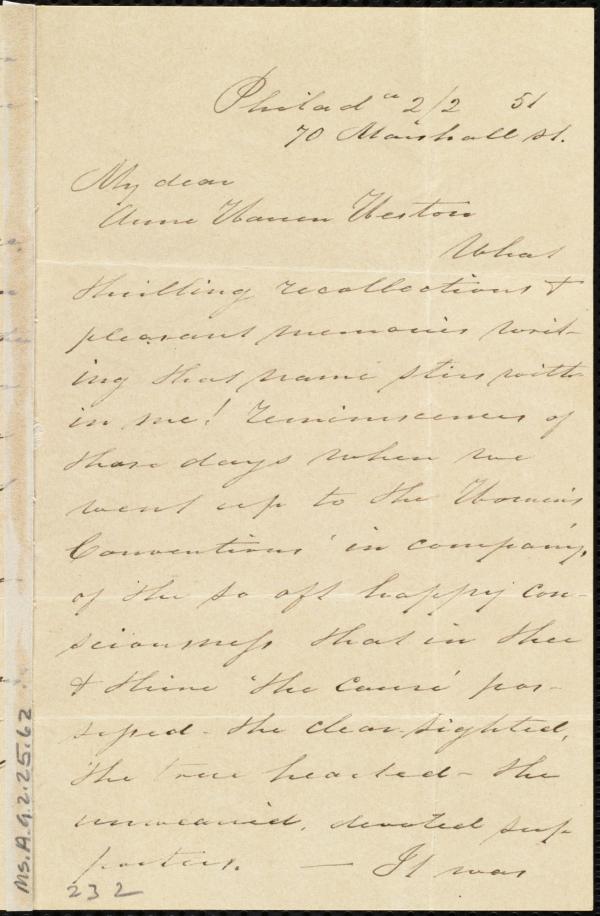 Philad.ª 2/2 51
70 Marshall st.
My dear
Anne Warren Weston
What
thrilling recollections &
pleasant memories writ-
ing that name stirs with-
in me! Reminiscences of
those days when we
went up to the 'Womens
Conventions' in company,
of the so oft happy con-
sciousness that in thee
& thine 'the cause' pos-
sessed - the clear-sighted,
the true hearted - the
unwearied, devoted sup-
porters. — It was
232
Ms.A.9.2.25.62